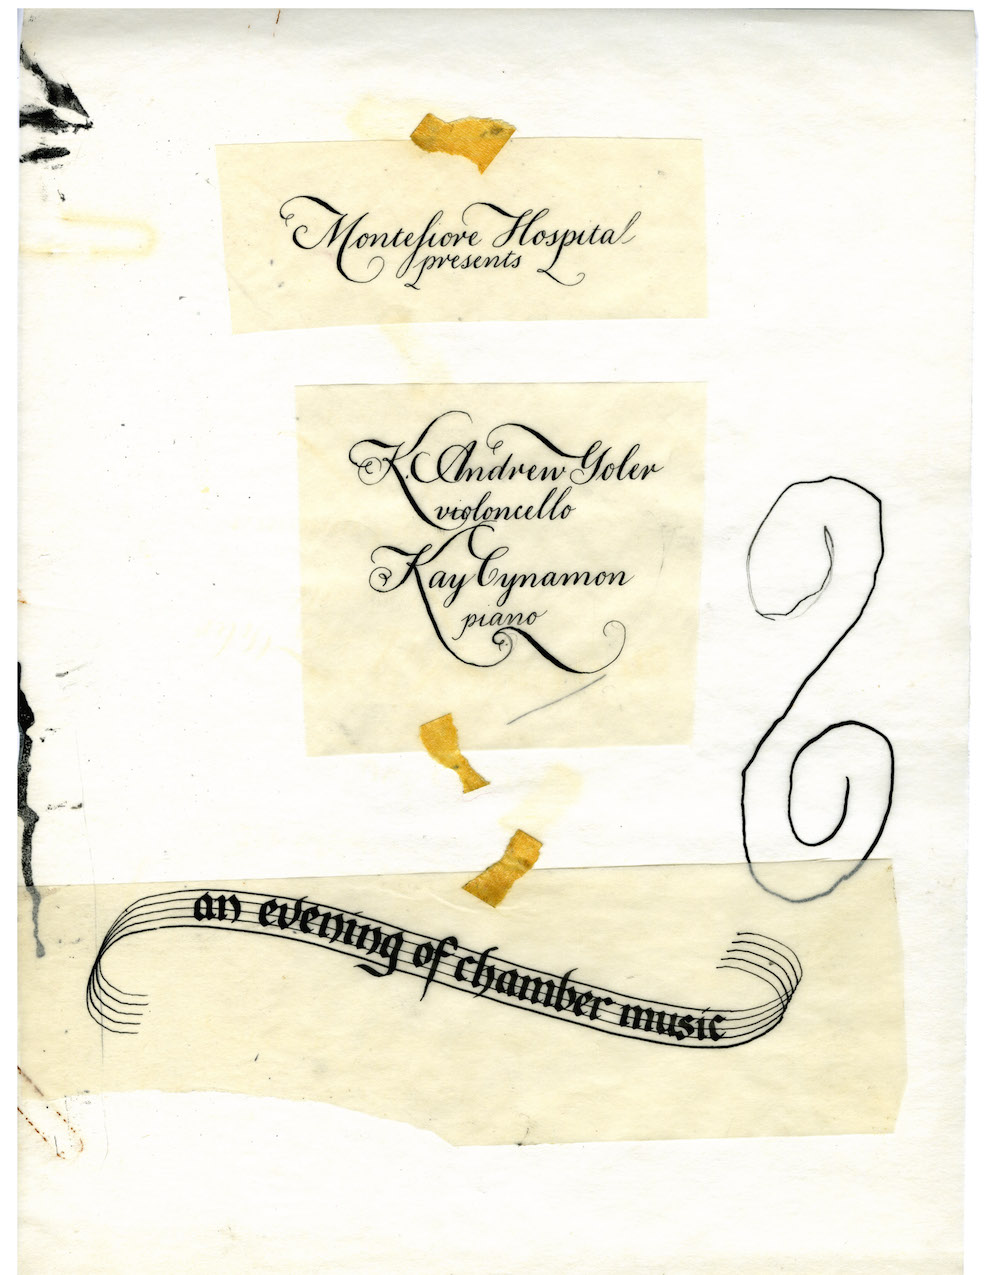 Montefiore Hospital
presents
K. Andrew Goler
violoncello
Kay Cynamon
piano
an evening of chamber music